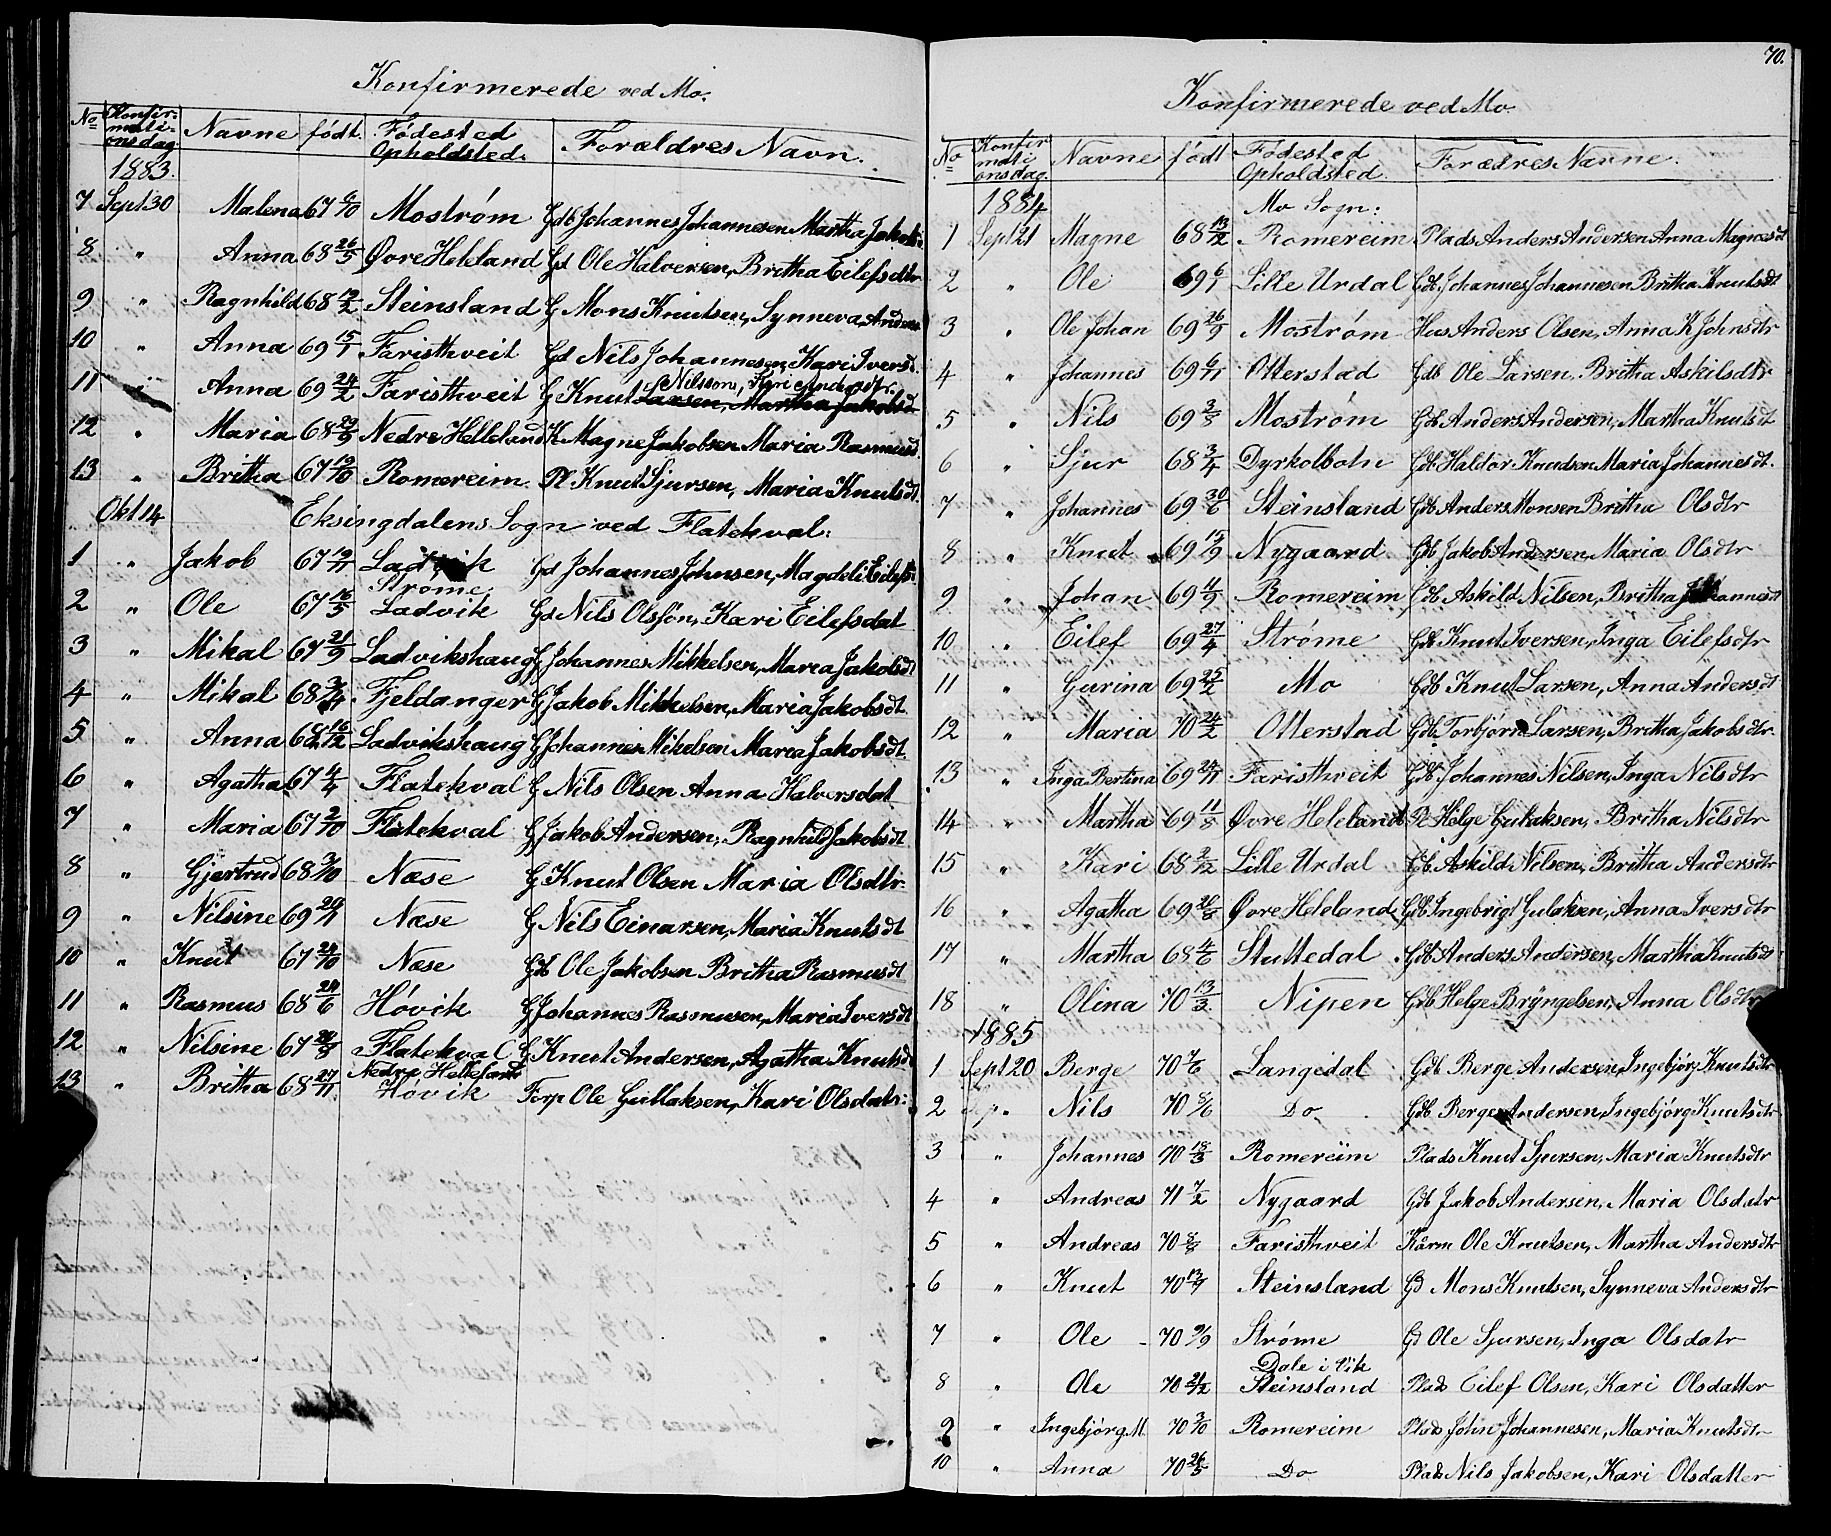 Konfirmerede ved Mo.
No Konfirmationsdag Navne født. Fødested Opholdsted. Forældres Navn.
1883.
7 Sept 30 Malena 67 6/10 Mostrøm Gdb Johannes Johannesen Martha Jakobsd
8 " Anna 68 26/5 Øvre Heleland Gd Ole Halversen, Britha Eilefsdtr
9 " Ragnhild 68 12/2 Steinsland G Mons Knutsen, Synneva Anders
10 " Anna 69 15/1 Faristhveit Gd Nils Johannesen, Kari Iversd.
11 " Anna 69 24/2 Faristhveit G Knut Larsen, Martha Jakobsd Nilssøn, Kari Andersdtr.
12 " Maria 68 29/9 Nedre Helleland K Magne Jakobsen Maria Rasmusd.
13 " Britha 67 19/10 Romereim Pl Knut Sjursen, Maria Knutsdt
Okt 14 Eksingdalens Sogn ved Flatekval:
1 " Jakob 67 19/11 Ladvik Gd Johannes Johnsen, Magdeli Eilefsd
2 " Ole 67 16/5 Strøme Ladvik Gd Nils Olsøn, Kari Eilefsdat
3 " Mikal 67 21/9 Ladvikshaug G Johannes Mikkelsen, Maria Jakobsdt
4 " Mikal 68 3/4 Fjeldanger G Jakob Mikkelsen, Maria Jakobsdt.
5 " Anna 68 16/12 Ladvikshaug G Johannes Mikelsen Maria Jakobsdt
6 " Agatha 67 4/4 Flatekval G Nils Olsen Anna Halversdat
7 " Maria 67 2/10 Flatekval G Jakob Andersen, Ragnhild Jakobsdt
8 " Gjertrud 68 3/10 Næse G Knut Olsen Maria Olsdtr.
9 " Nilsine 69 20/1 Næse G Nils Einarsen, Maria Knutsdt
10 " Knut 67 24/10 Næse Gdb Ole Jakobsen Britha Rasmusdt
11 " Rasmus 68 24/6 Høvik G Johannes Rasmusen, Maria Iversdt
12 " Nilsine 67 28/8 Flatekval G Knut Andersen, Agatha Knutsdt
13 " Britha 68 27/11 Nedre Helleland Høvik Forp Ole Gullaksen, Kari Olsdatr:
70.
Konfirmerede ved Mo.
No Konfirmationsdag. Navne født Fødested Opholdsted. Forædres Navne.
1884 Mo Sogn:
1 Sept 21 Magne 68 13/12 Romereim Plads Anders Andersen Anna Magnesdt
2 " Ole 69 6/1 Lille Urdal Gdb. Johannes Johannesen Britha Knutsdt
3 " Ole Johan 69 26/9 Mostrøm Hus Anders Olsen, Anna K Johnsdtr
4 " Johannes 69 6/11 Otterstad Gdb Ole Larsen. Britha Askilsdtr
5 " Nils 69 2/8 Mostrøm Gdb Anders Andersen, Martha Knutsdt
6 " Sjur 68 3/4 Dyrkolbotn Gdb Haldor Knudsen Maria Johannesdt.
7 " Johannes 69 30/6 Steinsland Gdb Anders Monsen Britha Olsdtr
8 " Knut 69 13/9 Nygaard Gdb Jakob Andersen, Maria Olsdtr
9 " Johan 69 4/9 Romereim Gdb Askild Nilsen, Britha Johannesdt
10 " Eilef 69 27/4 Strøme Gdb Knut Iversen, Inga Eilefsdtr
11 " Gurina 69 25/2 Mo Gdb Knut Larsen, Anna Andersdt
12 " Maria 70 24/2 Otterstad Gdb Torbjørn Larsen, Britha Jakobsdtr.
13 " Inga Bertina 69 24/11 Faristhveit Gdb. Johannes Nilsen, Inga Nilsdtr
14 " Martha 69 11/8 Øvre Heleland Pl Helge Gulaksen, Britha Nilsdtr
15 " Kari 68 2/12 Lille Urdal Gdb. Askild Nilsen, Britha Andersdtr
16 " Agatha 69 20/8 Øvre Heleland Gdb Ingebrigt Gulaksen, Anna Iversdtr
17 " Martha 68 4/6 Stuttedal Gdb Anders Andersen, Martha Knutsdt
18 " Olina 70 13/3 Nipen Gdb Helge Brÿngelsen, Anna Olsdtr
1885
1 Sept 20 Berge 70 7/6 Langedal Gdb Berge Andersen, Ingebjørg Knutsdtr
2 Sep " Nils 70 8/6 Do Gdb Berge Andersen, Ingebjørg Knutsdtr
3 " Johannes 70 18/3 Romereim Plads Knut Sjursen, Maria Knutsdtr
4 " Andreas 71 7/2 Nygaard Gdb Jakob Andersen, Maria Olsdatr
5 " Andreas 70 8/8 Faristhveit Kårm Ole Knutsen, Martha Andersdtr
6 " Knut 70 13/9 Steinsland Gd Mons Knutsen, Synneva Andersdtr
7 " Ole 70 9/9 Strøme Gd Ole Sjursen, Inga Olsdatr
8 " Ole 70 21/2 Dale i Vik Steinsland Plads Eilef Olsen, Kari Olsdatter
9 " Ingebjørg M. 70 3/10 Romereim Plads John Johannesen, Maria Knutsdtr
10 " Anna 70 26/5 Do Plads Nils Jakobsen, Kari Olsdatter